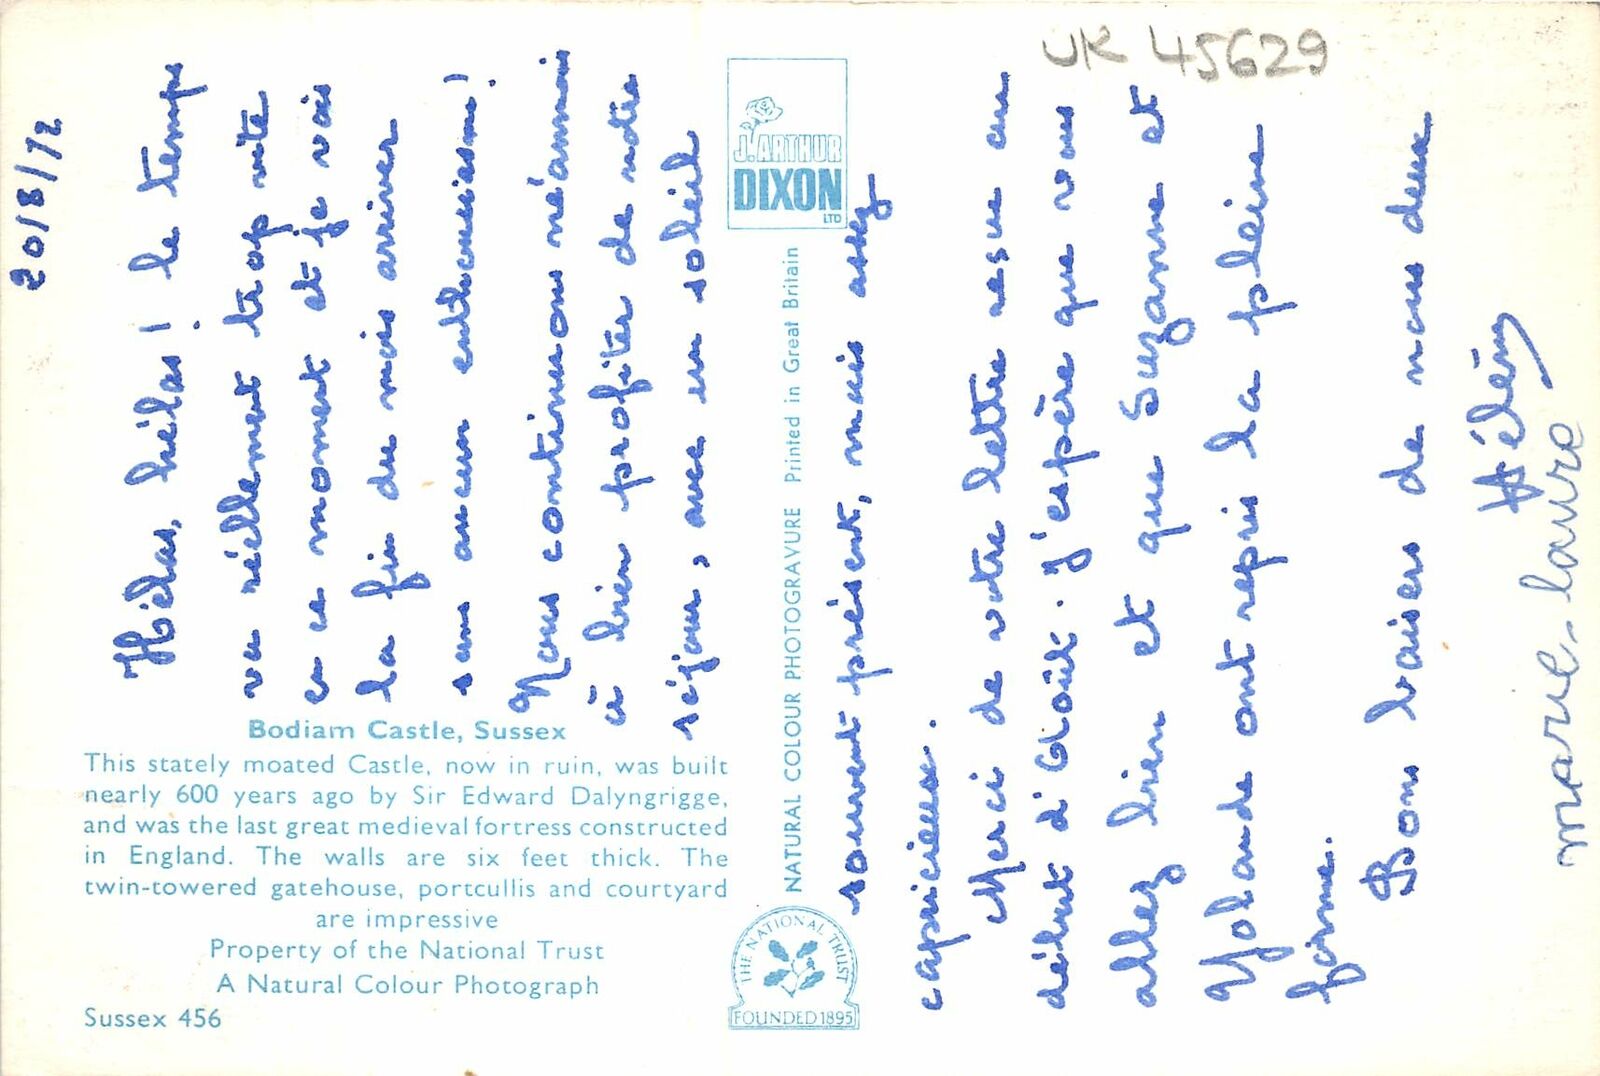 UK 45629
20/8/72
Hélas, hélas ! le temps
va réellement trop vite
en ce moment et je vois
la fin du mois arriver
sans aucun enthousiasme !
Nous continuons néanmoins
à bien profiter de notre
séjour, avec un soleil
souvent présent, mais assez
capricieux.
Merci de votre lettre reçue au
début d'Août. J'espère que vous
allez bien et que Suzanne et
Yolande ont repris la pleine
forme.
Bons baisers de nous deux
Hélèn
marie-laure
Bodiam Castle, Sussex
This stately moated Castle, now in ruin, was built
nearly 600 years ago by Sir Edward Dalyngrigge,
and was the last great medieval fortress constructed
in England. The walls are six feet thick. The
twin-towered gatehouse, portcullis and courtyard
are impressive
Property of the National Trust
A Natural Colour Photograph
Sussex 456
J. ARTHUR
DIXON
LTD
NATURAL COLOUR PHOTOGRAVURE Printed in Great Britain
THE NATIONAL TRUST
FOUNDED 1895